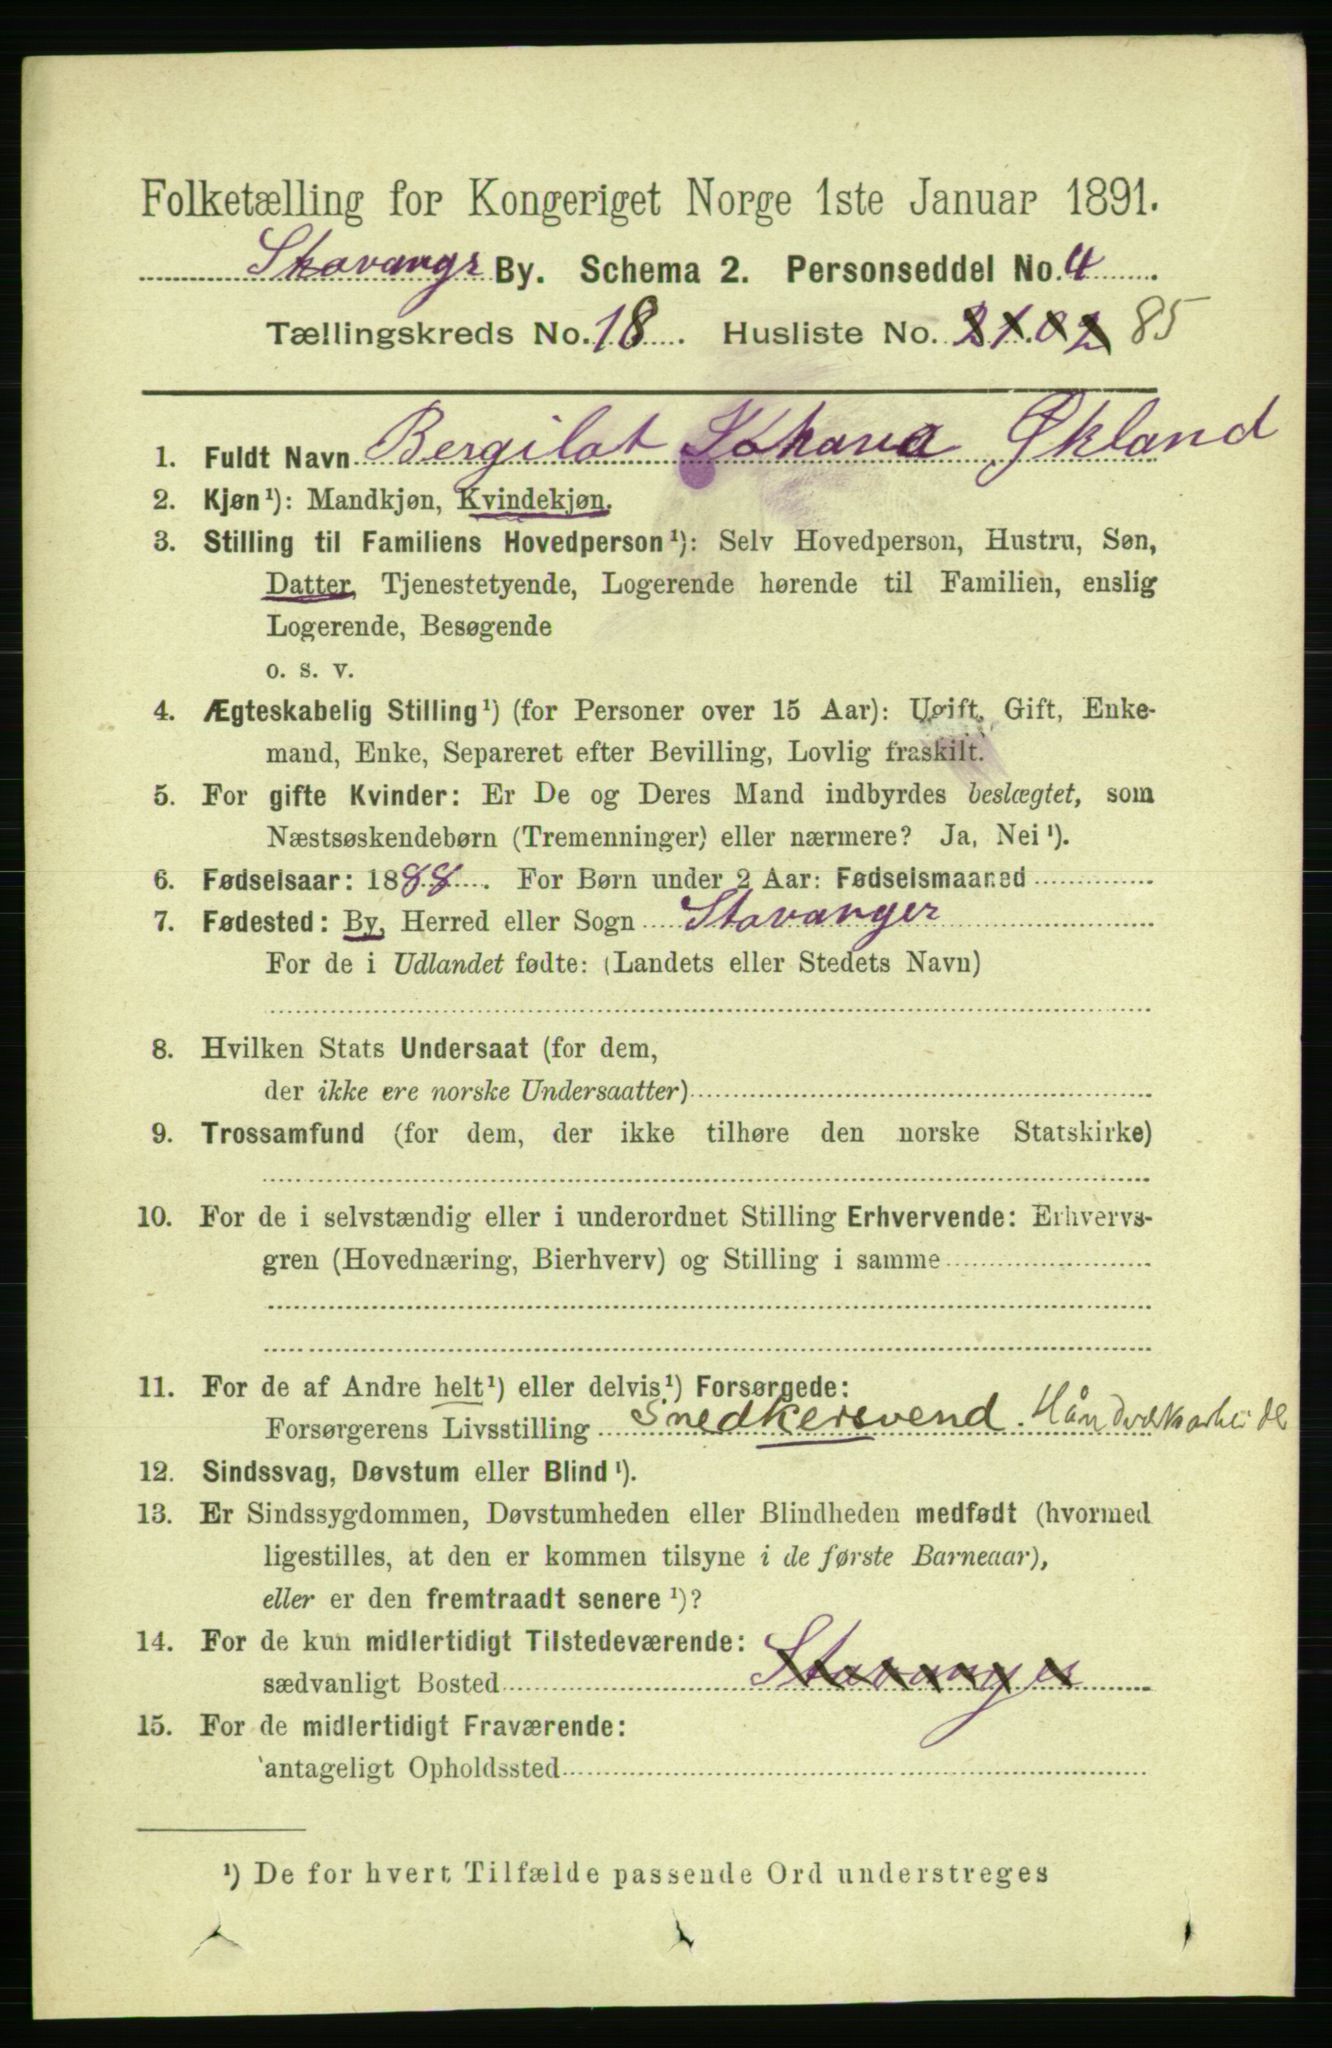 Folketælling for Kongeriget Norge 1ste Januar 1891.
Stavanger By. Schema 2. Personseddel No. 4
Tællingskreds No. 18. Husliste No. 85
1. Fuldt Navn Bergilot Johana Økland
2. Kjøn¹): Mandkjøn, Kvindekjøn.
3. Stilling til Familiens Hovedperson¹): Selv Hovedperson, Hustru, Søn,
Datter, Tjenestetyende, Logerende hørende til Familien, enslig
Logerende, Besøgende
o. s. v.
4. Ægteskabelig Stilling¹) (for Personer over 15 Aar): Ugift, Gift, Enke-
mand, Enke, Separeret efter Bevilling, Lovlig fraskilt.
5. For gifte Kvinder: Er De og Deres Mand indbyrdes beslægtet, som
Næstsøskendebørn (Tremenninger) eller nærmere? Ja, Nei¹).
6. Fødselsaar: 1888. For Børn under 2 Aar: Fødselsmaaned
7. Fødested: By, Herred eller Sogn Stavanger
For de i Udlandet fødte: (Landets eller Stedets Navn)
8. Hvilken Stats Undersaat (for dem,
der ikke ere norske Undersaatter)
9. Trossamfund (for dem, der ikke tilhøre den norske Statskirke)
10. For de i selvstændig eller i underordnet Stilling Erhvervende: Erhvervs-
gren (Hovednæring, Bierhverv) og Stilling i samme
11. For de af Andre helt¹) eller delvis¹) Forsørgede:
Forsørgerens Livsstilling Snedkersvend. Håndværksarbeider
12. Sindssvag, Døvstum eller Blind¹).
13. Er Sindssygdommen, Døvstumheden eller Blindheden medfødt (hvormed
ligestilles, at den er kommen tilsyne i de første Barneaar),
eller er den fremtraadt senere¹)?
14. For de kun midlertidigt Tilstedeværende:
sædvanligt Bosted Stavanger
15. For de midlertidigt Fraværende:
antageligt Opholdssted
¹) De for hvert Tilfælde passende Ord understreges